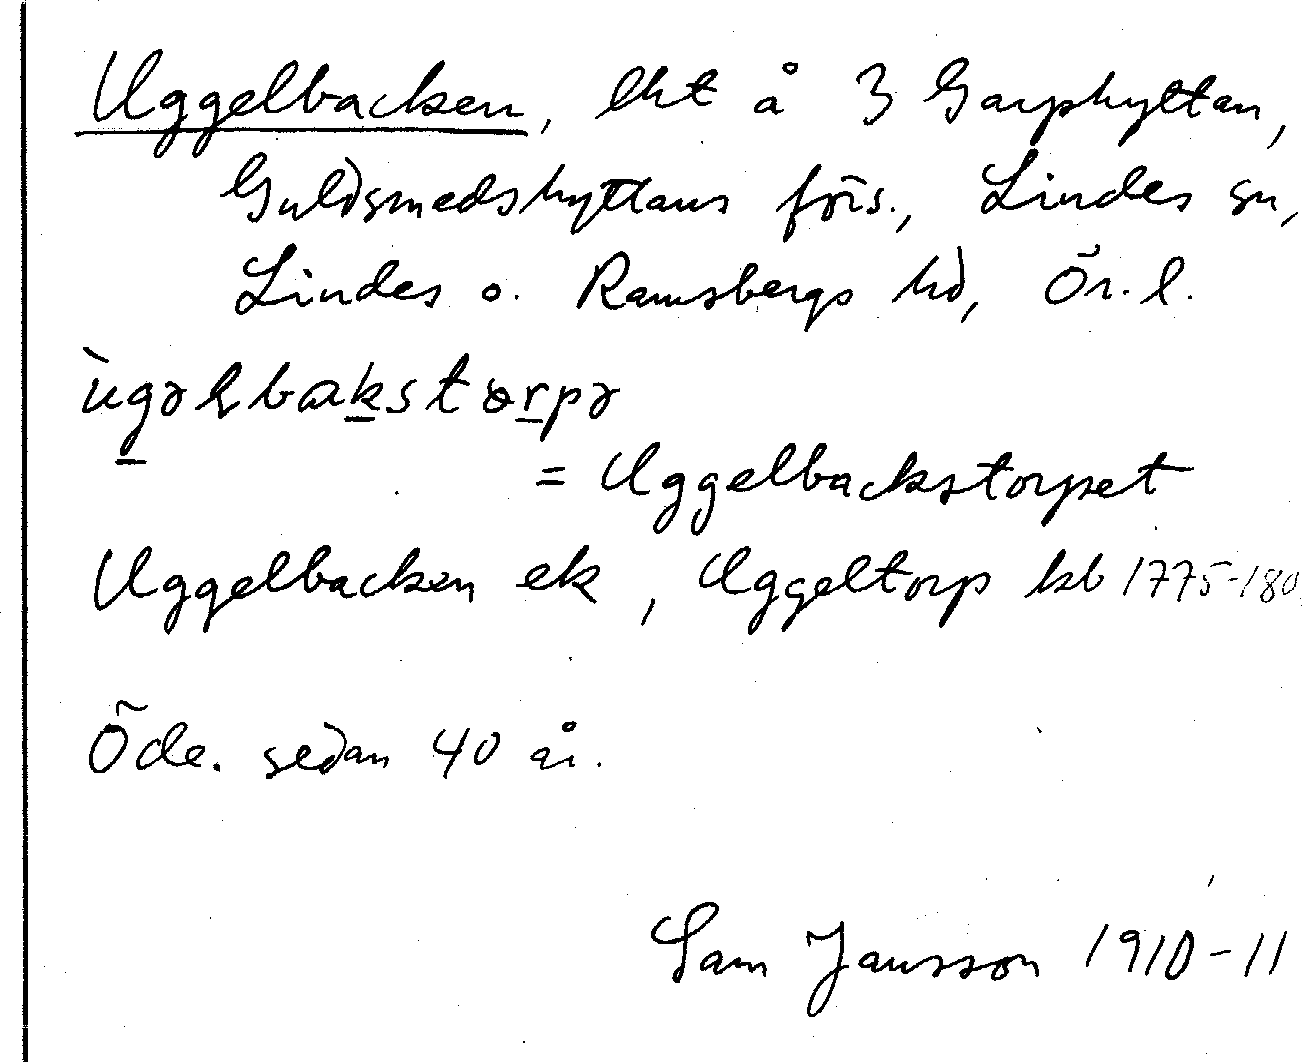 Uggelbacken, lht å 3 Garphyttan,
Guldsmedshyttans förs., Lindes sn,
Lindes o. Ramsbergs hd, Ör. l.
ùgəɫbakstɷrpə
= Uggelbackstorpet
Uggelbacken ek, Uggeltorp kb 1775-180
Öde. sedan 40 år.
Sam Jansson 1910-11